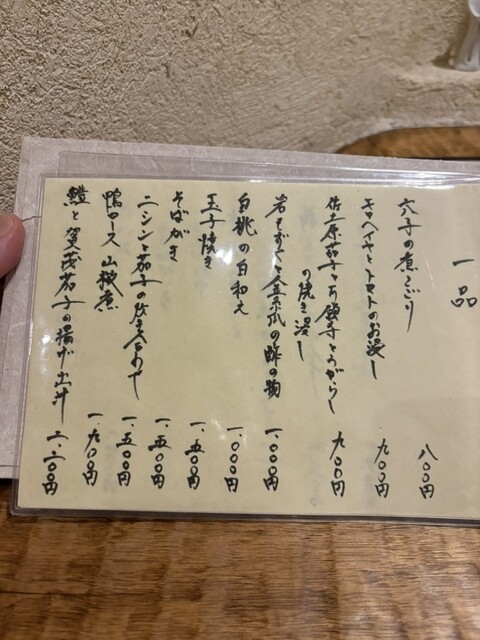 一品
穴子の煮こごり 八〇〇円
モロヘイヤとトマトのお浸し 九〇〇円
佐土原茄子と万願寺とうがらし
の焼き浸し 九〇〇円
岩もずくと金糸瓜の酢の物 一、〇〇〇円
白桃の白和え 一、〇〇〇円
玉子焼き 一、五〇〇円
そばがき 一、五〇〇円
ニシンと茄子の炊き合わせ 一、五〇〇円
鴨ロース山椒煮 一、九〇〇円
鱧と賀茂茄子の揚げ出汁 二、二〇〇円